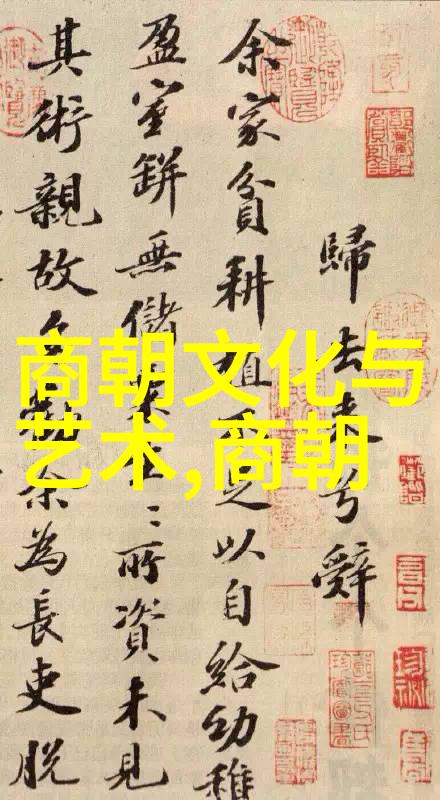 商朝文化与
艺术,商朝
歸去来兮辭
余家貧耕植不足以自給幼稚
盈室缾無儲粟生〻所資未見
其術親故多勸余為長吏脱